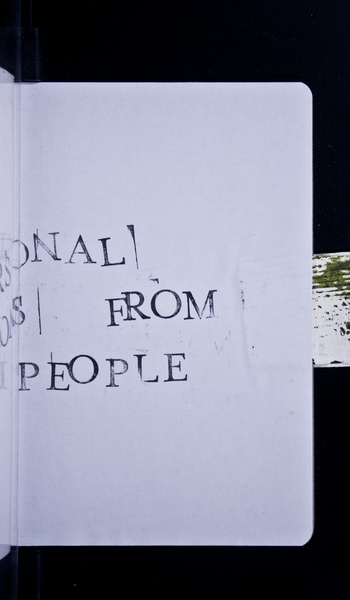 ONAL
S FROM
PEOPLE